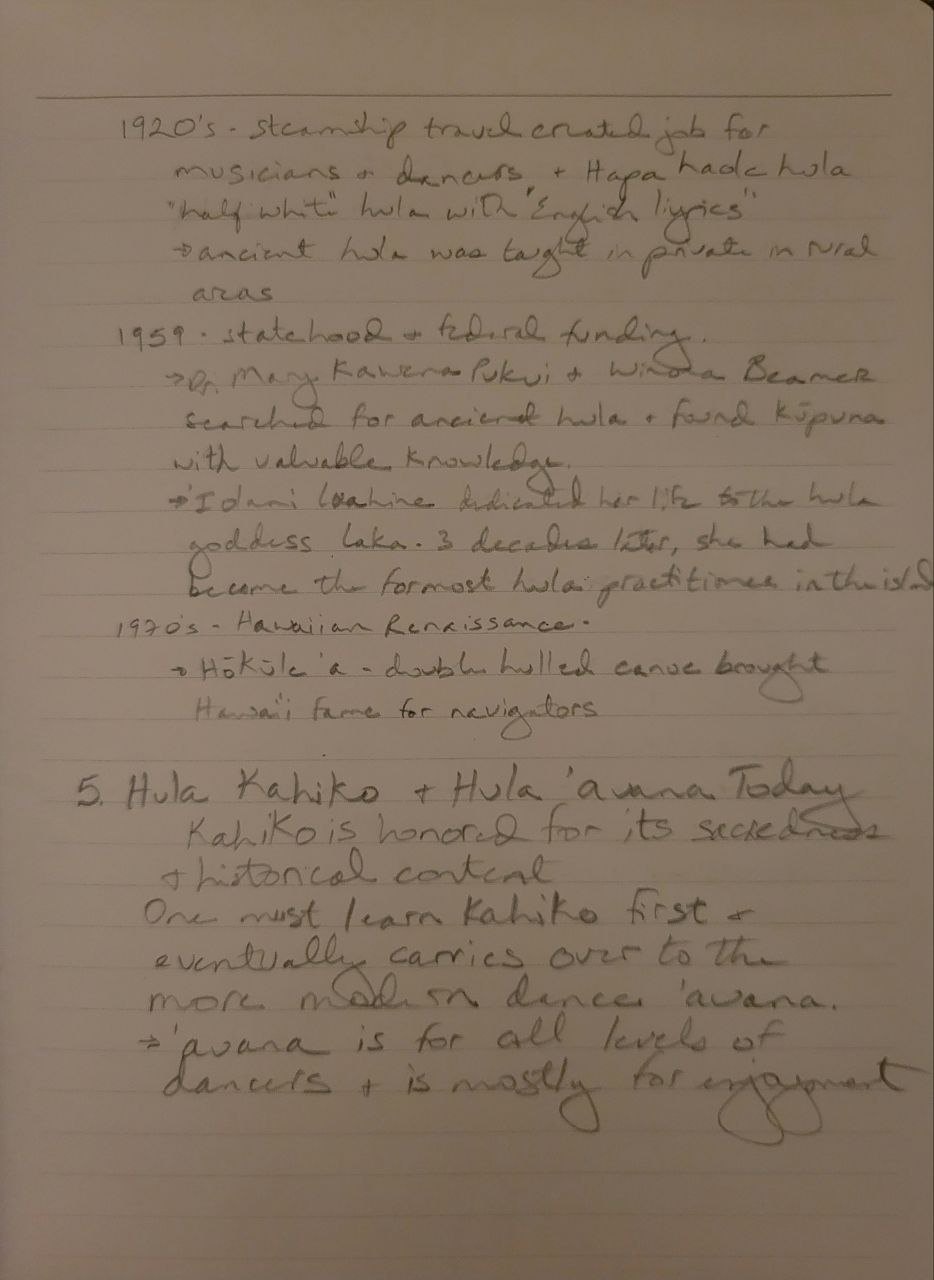 1920's - steamship travel created job for
musicians + dancers, + Hapa haole hula
"half white" hula with "English liyrics"
→ ancient hula was taught in private in rural
areas
1959 - statehood + federal funding.
→ Dr. Mary Kawena Pukui + Winona Beamer
searched for ancient hula + found Kūpuna
with valuable knowledge.
→ 'Iolani Luahine dedicated her life to the hula
goddess Laka. 3 decades later, she had
become the formost hula practitioner in the
1970's - Hawaiian Renaissance.
→ Hōkūle'a - double hulled canoe brought
Hawai'i fame for navigators
5. Hula Kahiko + Hula 'auana Today
Kahiko is honored for its sacredness
+ historical content
One must learn Kahiko first +
eventually carries over to the
more modern dance 'auana.
→ 'auana is for all levels of
dancers + is mostly for enjoyment